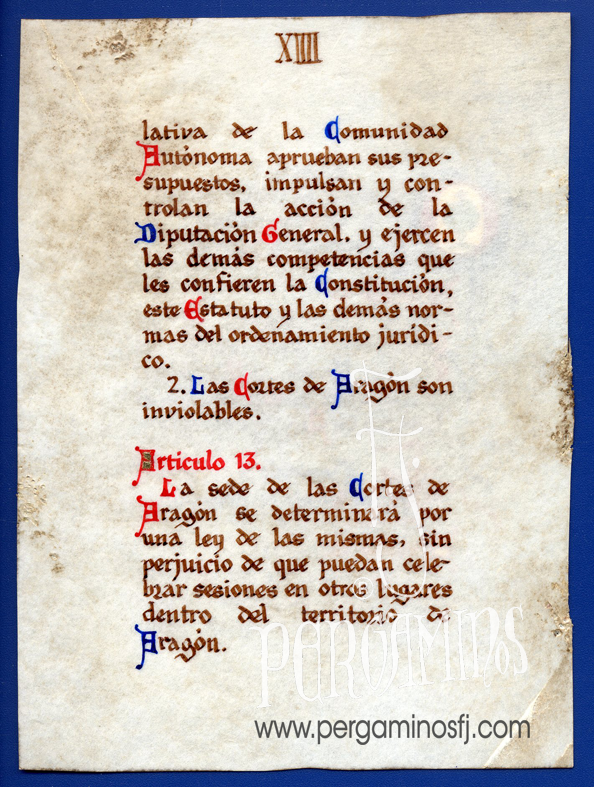 XIIII
lativa de la Comunidad
Autónoma aprueban sus pre-
supuestos, impulsan y con-
trolan la acción de la
Diputación General, y ejercen
las demás competencias que
les confieren la Constitución,
este Estatuto y las demás nor-
mas del ordenamiento jurídi-
co.
2. Las Cortes de Aragón son
inviolables.
Artículo 13.
La sede de las Cortes de
Aragón se determinará por
una ley de las mismas, sin
perjuicio de que puedan cele-
brar sesiones en otros lugares
dentro del territorio de
Aragón.
FJ
PERGAMINOS
www.pergaminosfj.com